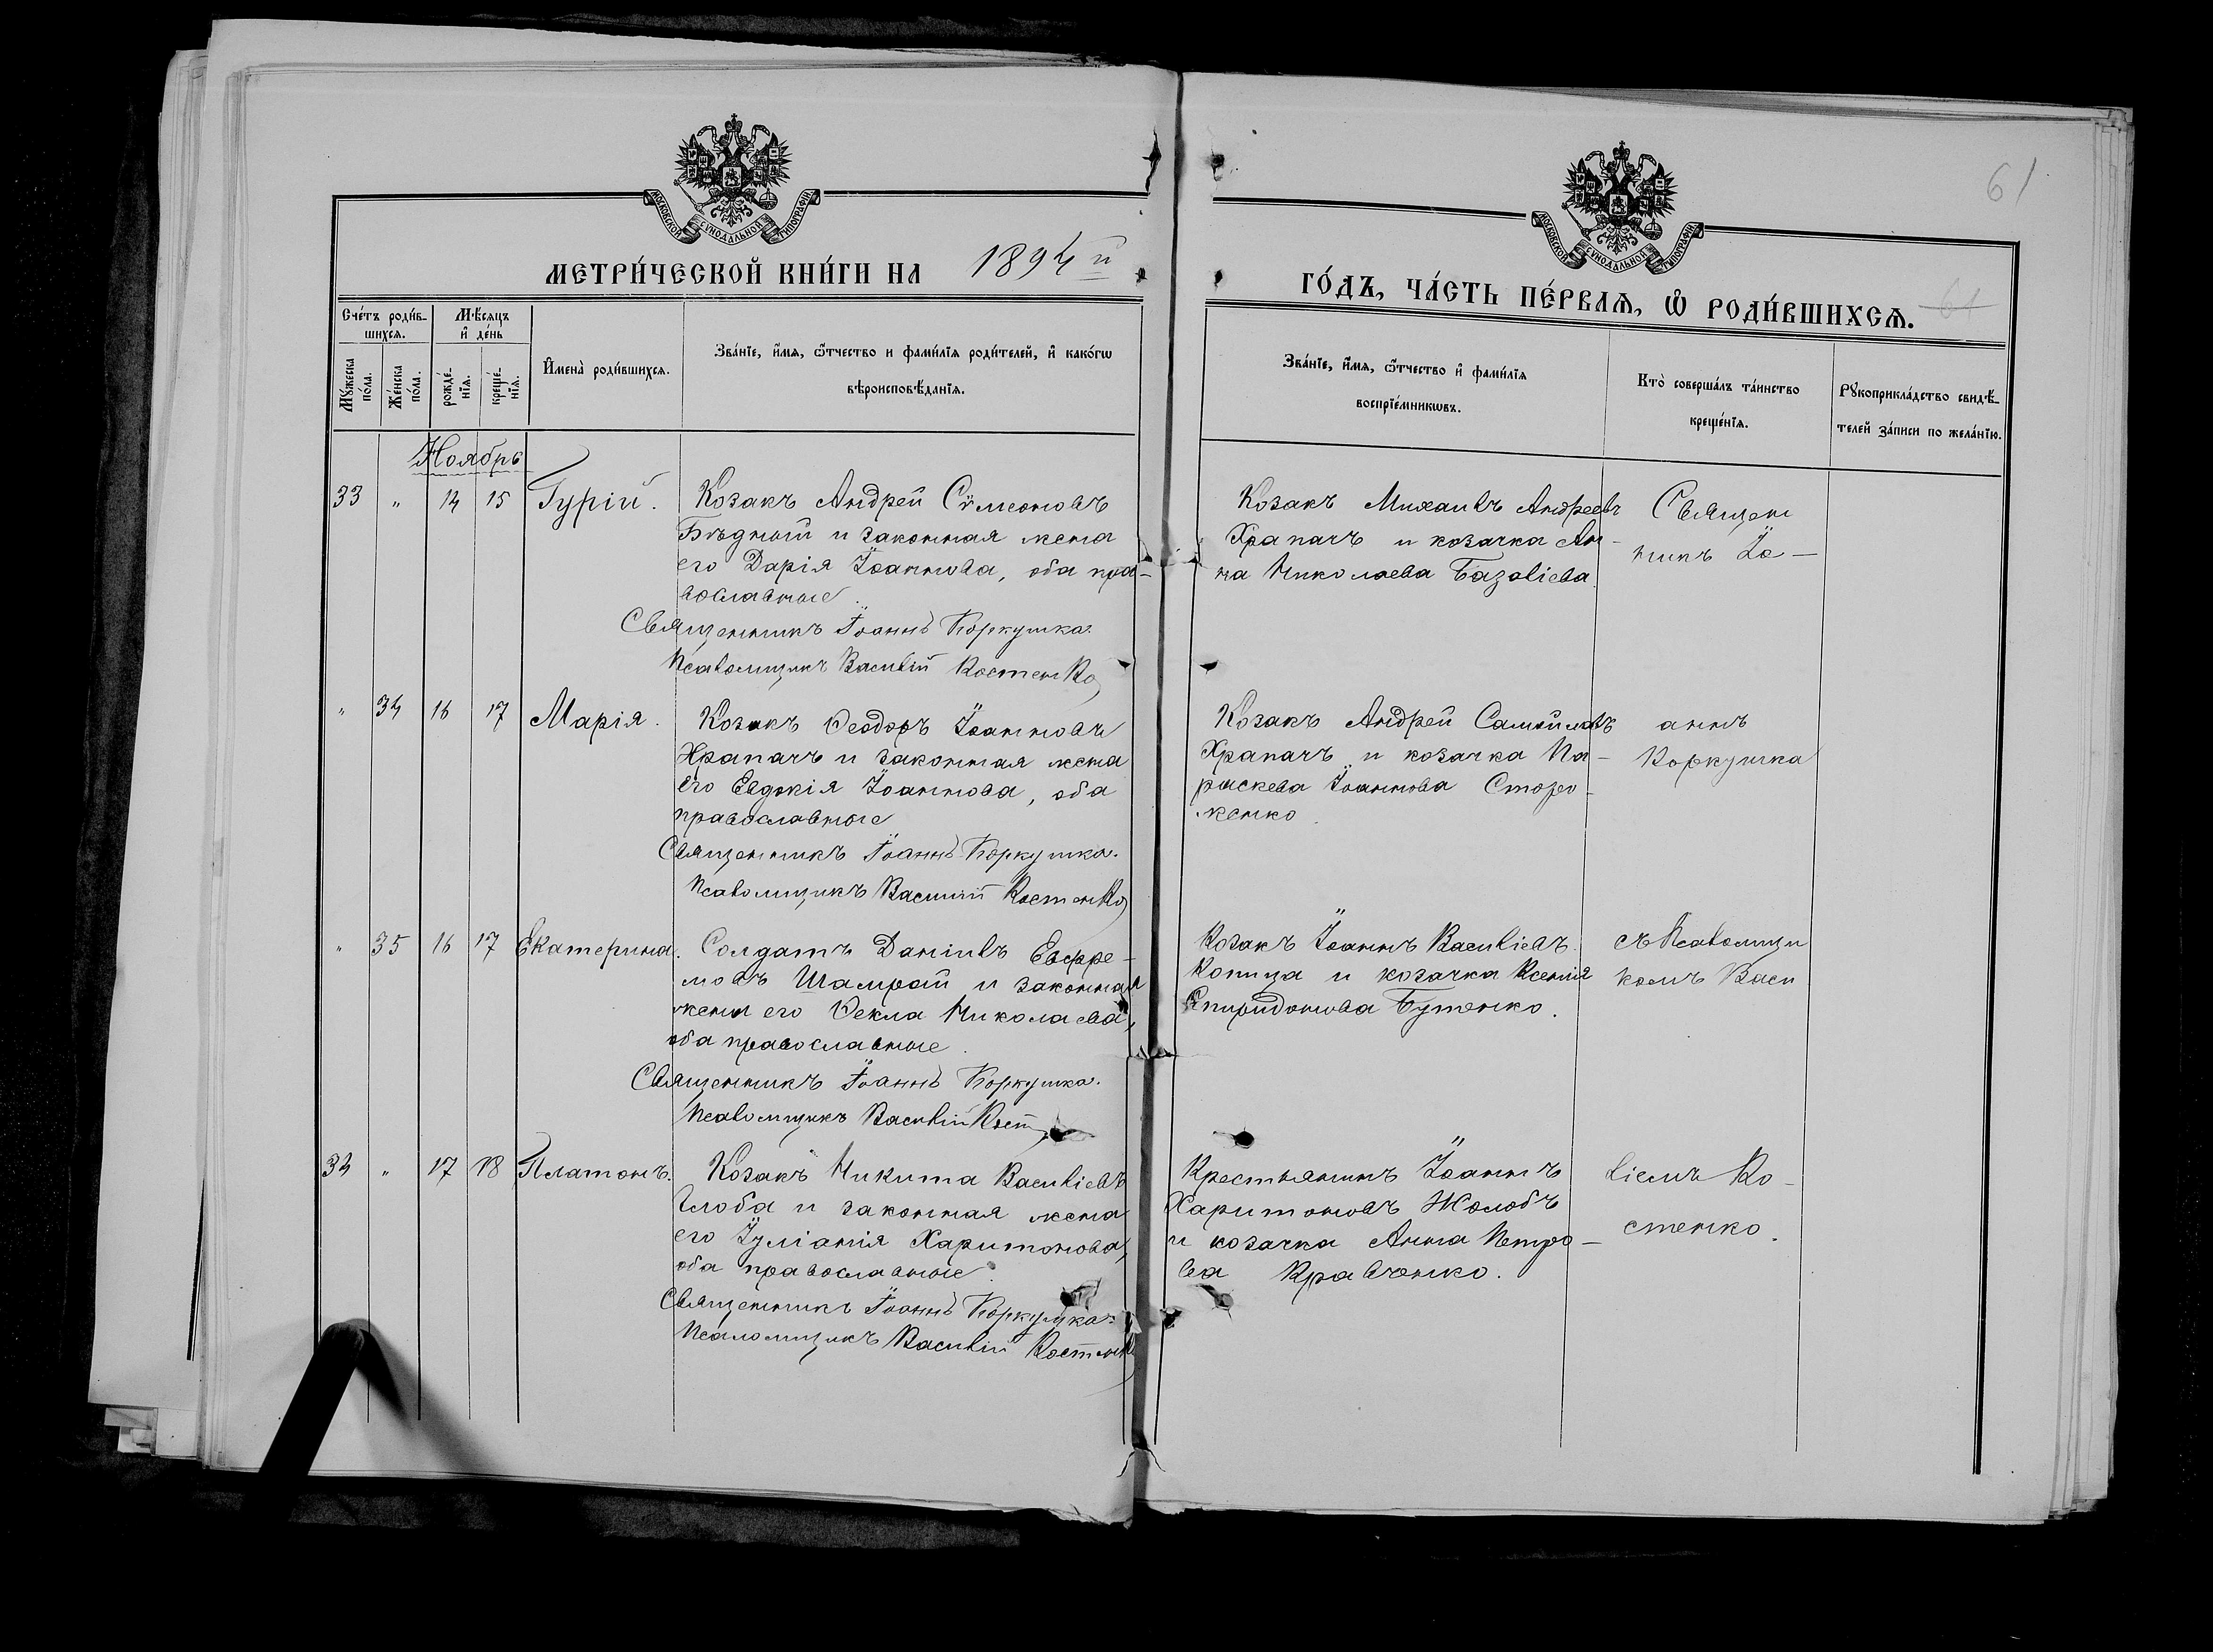 61
МОСКОВСКОЙ СѴНОДАЛЬНОЙ ТИПОГРАФІИ
МОСКОВСКОЙ СѴНОДАЛЬНОЙ ТИПОГРАФІИ
МЕТРИ́ЧЕСКОЙ КНИ́ГИ НА 1894 й
ГО́ДЪ, ЧА́СТЬ ПЕ́РВАѦ, Ѡ҆ РОДИ́ВШИХСѦ. 61
Сче́тъ роди́в-
шихсѧ.
Мꙋ́жеска по́ла.
Же́нска по́ла.
Мѣ́сѧцъ
и҆ де́нь
рожде́-
нїѧ.
креще́-
нїѧ.
И҆мена̀ роди́вшихсѧ.
Зва́нїе, и҆́мѧ, ѻ҆́тчество и фами́лїѧ роди́телей, и҆ како́гѡ
вѣроисповѣ́данїѧ.
Зва́нїе, и҆́мѧ, ѻ҆́тчество и҆ фами́лїѧ
воспрїе́мникѡвъ.
Кто̀ соверша́лъ та́инство
креще́нїѧ.
Рꙋкоприкла́дство свидѣ́-
телей за́писи по жела́нїю.
Ноябрь
33 " 14 15 Гурій. Козакъ Андрей Сѵмеоновъ
Бѣдный и законная жена
его Дарія Іоаннова, оба пра-
вославные.
Священникъ Іоаннъ Коркушка.
Псаломщикъ Василій Костенко
Козакъ Михаилъ Андреевъ
Храпачъ и козачка Ан-
на Николаева Базавіева.
Священ
никъ Іо-
" 34 16 17 Марія. Козакъ Ѳеодоръ Іоанновъ
Храпачъ и законная жена
его Евдокія Іоаннова, оба
православные
Священникъ Іоаннъ Коркушка.
Псаломщикъ Василій Костенко
Козакъ Андрей Самойловъ
Храпачъ и козачка Па-
раскева Іоаннова Сторо-
женко.
аннъ
Коркушка
" 35 16 17 Екатерина. Солдатъ Даніилъ Евфре-
мовъ Шамрай и законная
жена его Ѳекла Николаева,
оба православные.
Священникъ Іоаннъ Коркушка.
Псаломщикъ Василій Кост
Козакъ Іоаннъ Васильевъ
Копица и козачка Ксенія
Спиридонова Бутенко.
съ Псаломщи
комъ Васи
34 " 17 18 Платонъ. Козакъ Никита Васильевъ
Глоба и законная жена
его Іуліанія Харитонова,
оба православные.
Священникъ Іоаннъ Коркушка
Псаломщикъ Василій Костенко
Крестьянинъ Іоаннъ
Харитоновъ Жолобъ
и козачка Анна Петро-
ва Кравченко.
ліемъ Ко-
стенко.